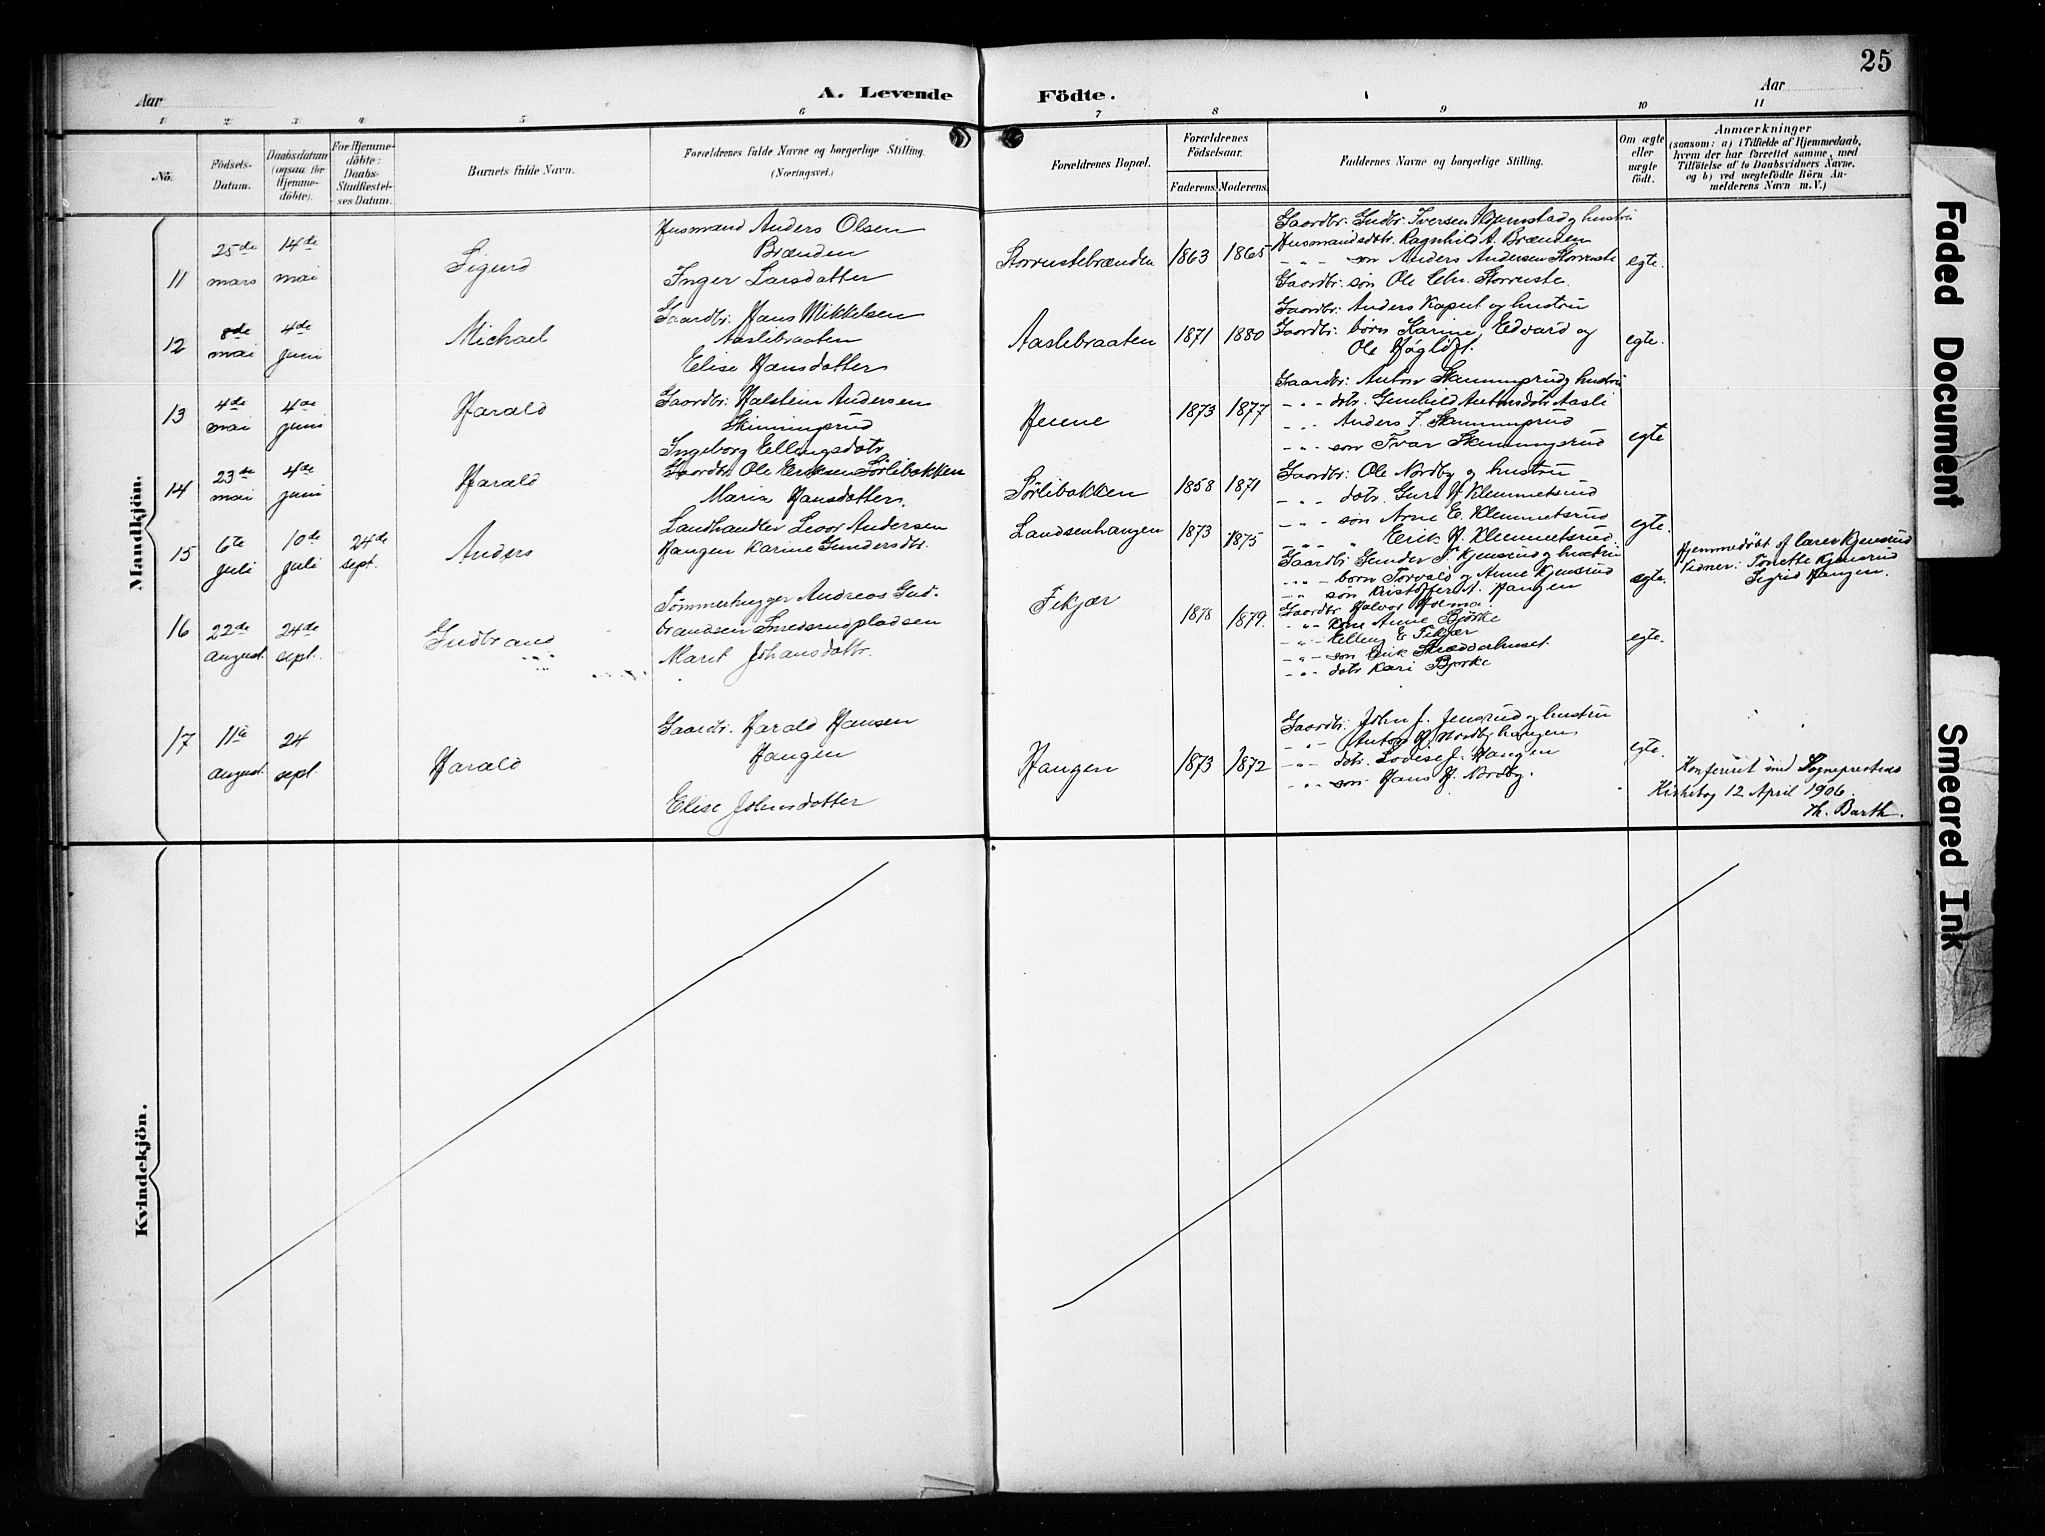 25
Aar
A. Levende Födte.
Aar
1 2 3 4 5 6 7 8 9 10 11
No.
Födsels-
Datum.
Daabsdatum
(ogsaa for
Hjemme-
döbte).
For Hjemme-
döbte:
Daabs-
Stadfæstel-
ses Datum.
Barnets fulde Navn.
Forældrenes fulde Navne og borgerlige Stilling.
(Næringsvei.)
Forældrenes Bopæl.
Forældrenes
Födselsaar.
Faderens. Moderens.
Faddernes Navne og borgerlige Stilling.
Om ægte
eller
uægte
födt.
Anmærkninger
(saasom: a) i Tilfælde af Hjemmedaab,
hvem der har forrettet samme, med
Tilföielse af to Daabsvidners Navne.
og b) ved uægtefödte Börn An-
melderens Navn m. V.)
Mandkjön.
11
25de
mars
14de
mai
Sigurd
Husmand Anders Olsen
Brænden
Inger Larsdatter
Storrustebrænden
1863 1865
Gaardbr. Gudbr. Iversen Hjemstad og hustru
Husmandsdatr. Ragnhild A. Brænden
" " søn Anders Andersen Storruste
Gaardbr. søn Ole Chr. Storruste.
egte.
12
8de
mai
4de
juni
Michael
Gaardbr. Hans Mikkelsen
Aaslibraaten
Elise Hansdatter
Aaslebraaten
1871 1880
Gaardbr. Anders Kaput og hustru
Gaardbr. børn Karine, Edvard og
Ole Høgløft.
egte.
13
4de
mai
4de
juni
Harald
Gaardbr. Halstein Andersen
Skinningsrud
Ingeborg Ellingsdatr.
1873 1877
Gaardbr. Anton Skinningsrud og hustru
- " - datr. Gunhild Antonsdatr. Aasli
- " - Anders I. Skinningsrud
- " - søn Ivar Skinningsrud
egte
14
23de
mai
4de
juni
Harald
Gaardbr. Ole Eriksen Sørlibakken
Maria Hansdatter.
Sørlibakken
1858 1871
Gaardbr. Ole Nordby og hustru
- " - datr. Guri H. Klemmetsrud
- " - søn Arne E. Klemmetsrud
- " - " Erik H. Klemmetsrud.
egte.
15
6te
juli
10de
juli
24de
sept.
Anders
Landhandler Iver Andersen
Hangen Karine Gundersdtr.
Landsenhangen
1873 1875
Gaardbr. Gunder T. Kjensrud og hustru
- " - børn Torvald og Anne Kjensrud
- " - søn Kristoffer A. Hangen
egte.
Hjemmedøbt af Lærer Kjensrud
Vidner: Tonette Kjensrud
Sigrid Hangen.
16
22de
august.
24de
sept.
Gudbrand
Tømmerhugger Andreas Gud-
brandsen Smedsrudpladsen
Marit Johansdatr.
Fekjær
1878 1879.
Gaardbr. Halvor Holma.
- " - Kone Anne Bjørke
- " - Elling E. Fekjær
- " - søn Erik Skrædderhuset
- " - datr. Kari Bjørke
egte.
17
11te
august.
24
sept.
Harald
Gaardbr. Harald Hansen
Hangen
Elise Johnsdatter
Hangen
1873 1872
Gaardbr. John J. Jensrud og hustru
- " - Anton H. Nordbyhagen,
- " - datr. Lovise J. Hangen
- " - søn Hans H. Nordby.
egte.
Konfereret med Sogneprestens
Kirkebog 12 April 1906.
Th. Barth.
Kvindekjön.
Faded Document
Smeared Ink